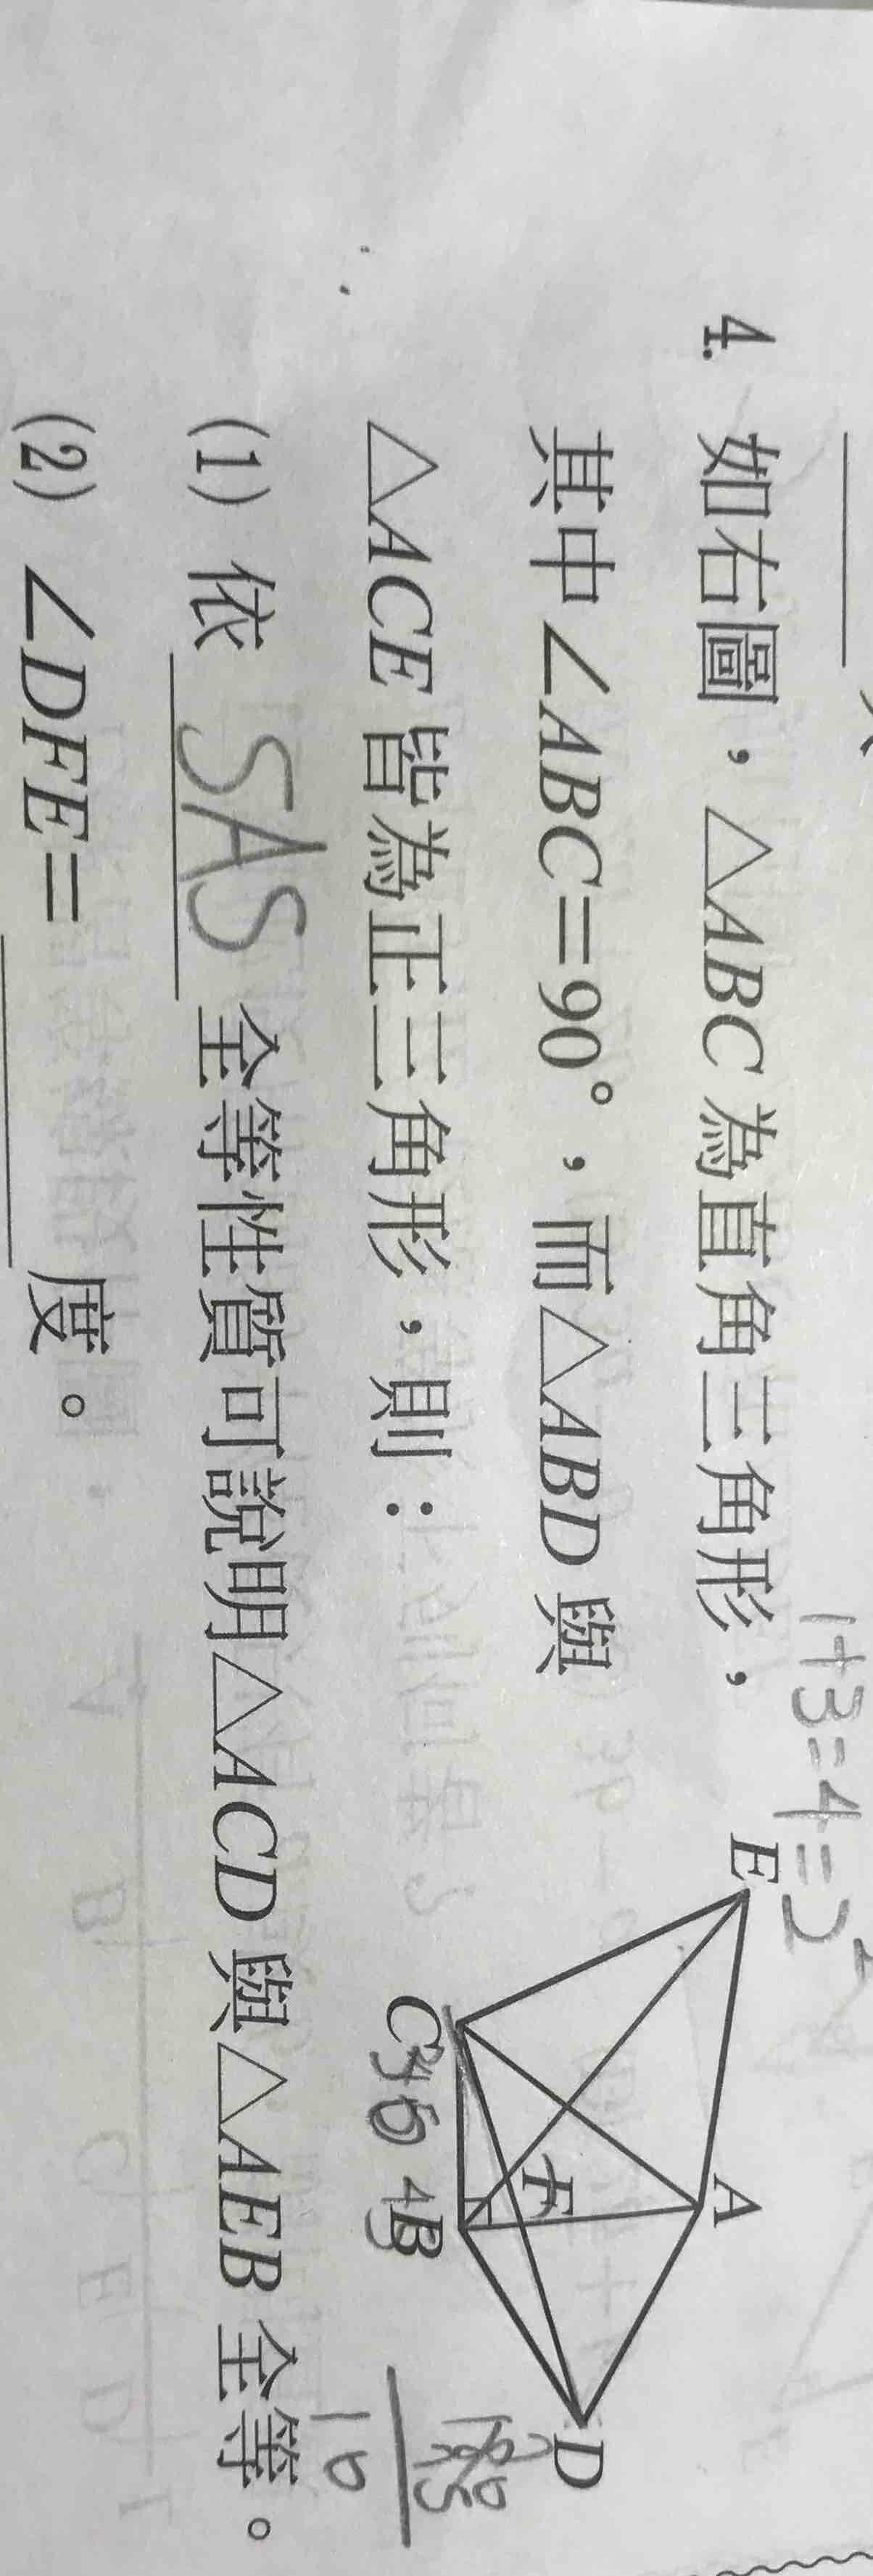 4. 如右圖，△ABC為直角三角形，
其中∠ABC=90°，而△ABD與
△ACE皆為正三角形，則：
(1) 依 SAS 全等性質可說明△ACD與△AEB全等。
(2) ∠DFE= 度。
1+3=4=2
E
A
C
F
B
D